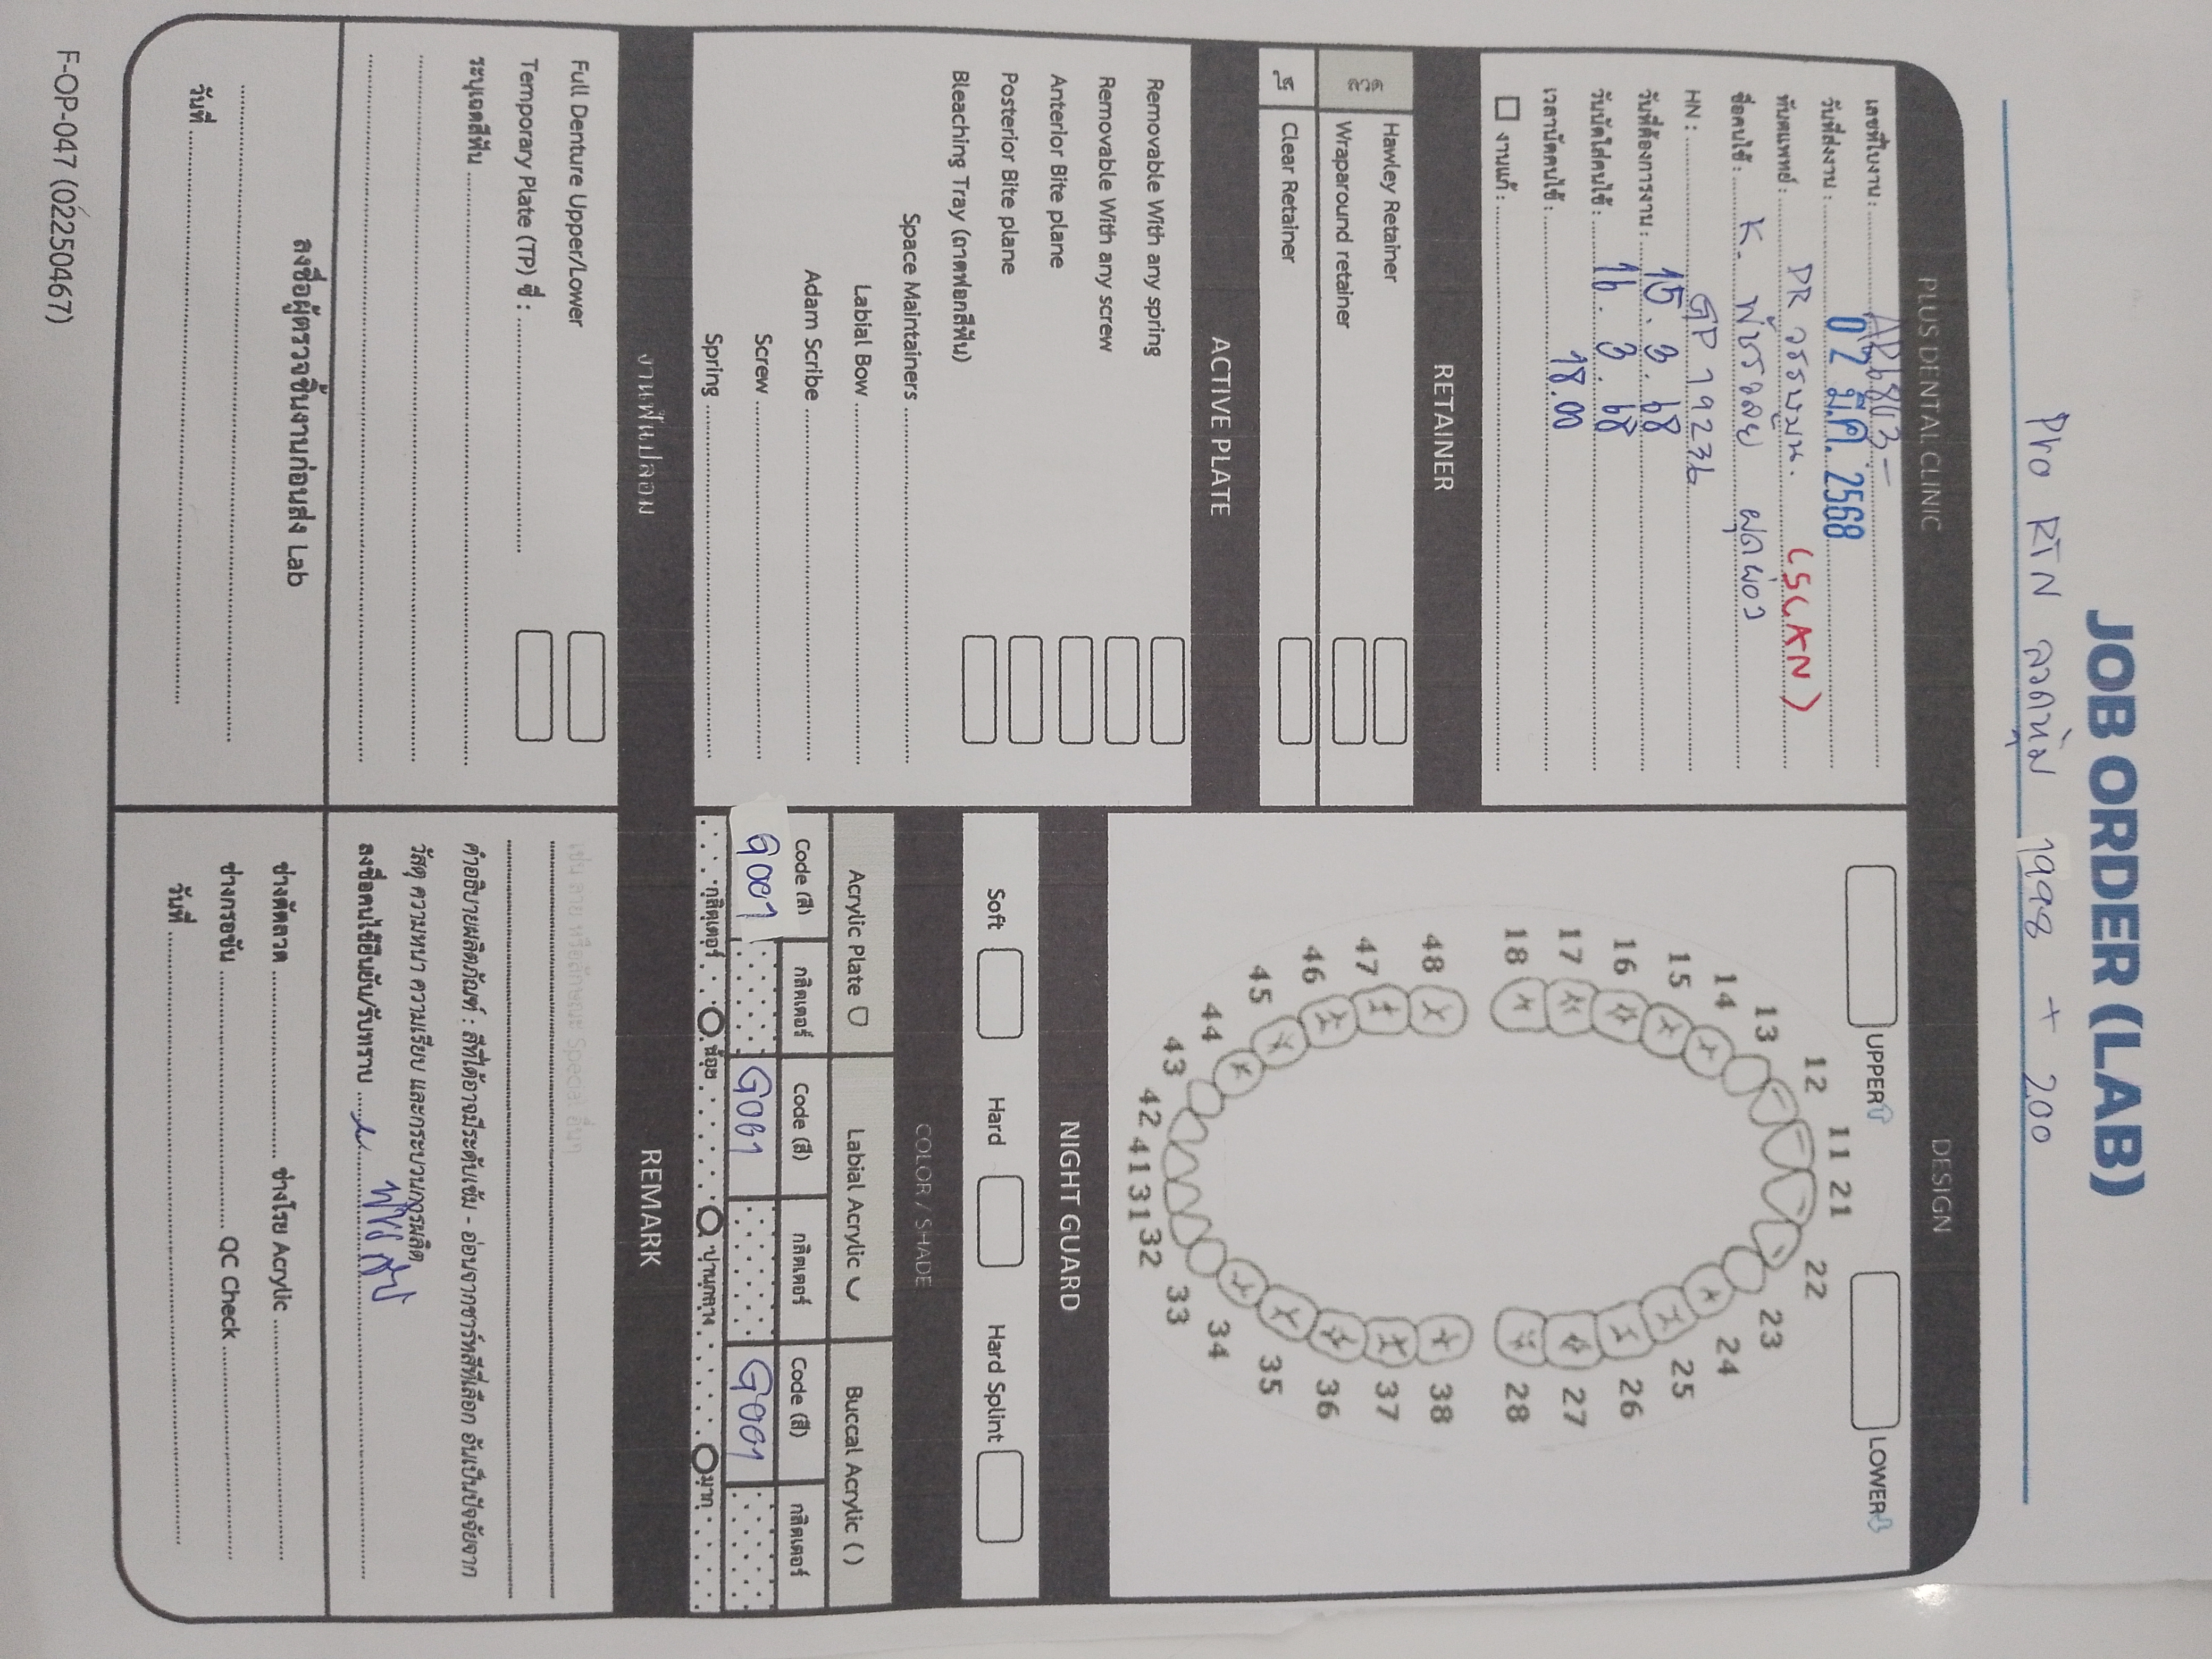 JOB ORDER (LAB)
Pro RTN ลวดนุ่ม 1998 + 200
PLUS DENTAL CLINIC
เลขที่ใบงาน :
วันที่ส่งงาน : 02 มี.ค. 2568
ทันตแพทย์ : DR วรรษมน. (SCAN)
ชื่อคนไข้ : K. พัชรวลย ผุดผ่อง
HN : GP 19236
วันที่ต้องการงาน : 15. 3. 68
วันนัดใส่คนไข้ : 16. 3. 68
เวลานัดคนไข้ : 18.00
งานแก้ :
RETAINER
ลวด
Hawley Retainer
Wraparound retainer
ใส
Clear Retainer
ACTIVE PLATE
Removable With any spring
Removable With any screw
Anterior Bite plane
Posterior Bite plane
Bleaching Tray (ถาดฟอกสีฟัน)
Space Maintainers
Labial Bow
Adam Scribe
Screw
Spring
งานฟันปลอม
Full Denture Upper/Lower
Temporary Plate (TP) ซี่ :
ระบุเฉดสีฟัน
ลงชื่อผู้ตรวจชิ้นงานก่อนส่ง Lab
วันที่
DESIGN
UPPER LOWER
11 21
12 22
13 23
14 24
15 25
16 26
17 27
18 28
48 38
47 37
46 36
45 35
44 34
43 33
42 41 31 32
NIGHT GUARD
Soft Hard Hard Splint
COLOR / SHADE
Acrylic Plate Labial Acrylic Buccal Acrylic ( )
Code (สี) กลิตเตอร์ Code (สี) กลิตเตอร์ Code (สี) กลิตเตอร์
G001 G001 G001
กลิตเตอร์ น้อย ปานกลาง มาก
REMARK
เช่น ลาย หรือลักษณะ Special อื่นๆ
คำอธิบายผลิตภัณฑ์ : สีที่ได้อาจมีระดับเข้ม - อ่อนจากชาร์ทสีที่เลือก อันเป็นปัจจัยจาก
วัสดุ ความหนา ความเรียบ และกระบวนการผลิต
ลงชื่อคนไข้ยืนยัน/รับทราบ
ช่างดัดลวด ช่างโรย Acrylic
ช่างกรอขัน QC Check
วันที่
F-OP-047 (02250467)